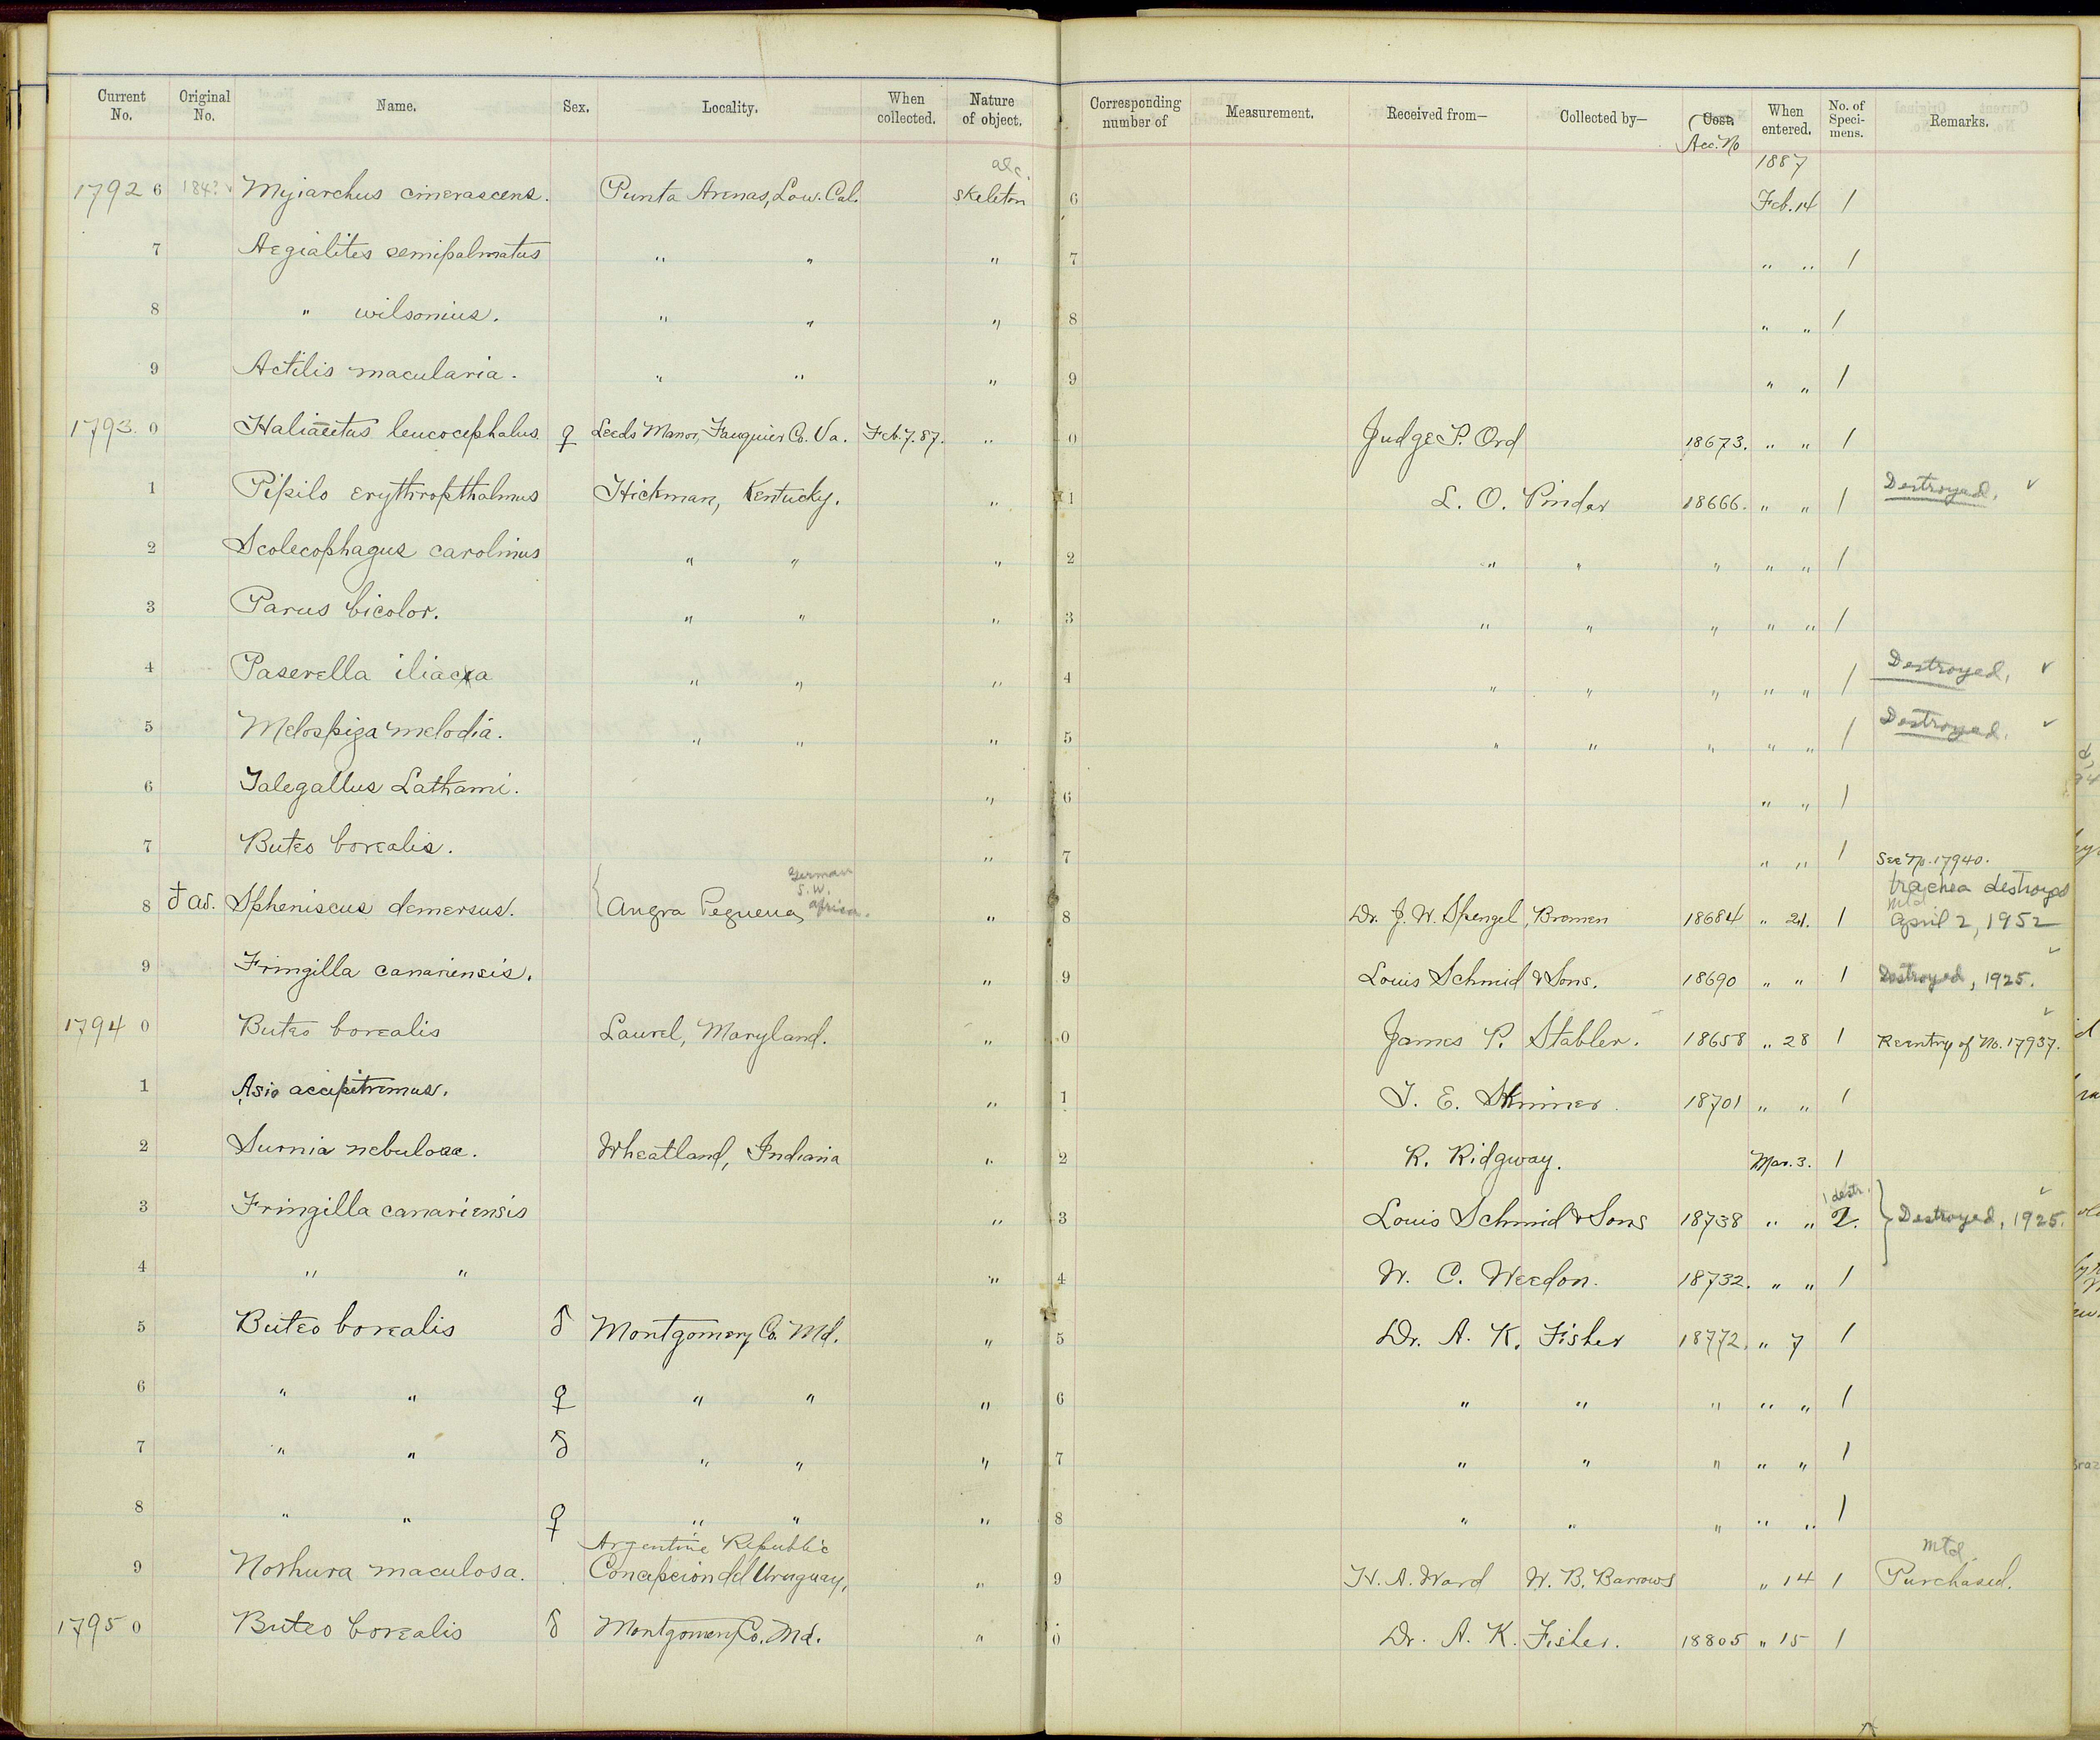 Current No. Original No. Name. Sex. Locality. When collected. Nature of object. Corresponding number of Measurement. Received from— Collected by— Cost. Acc. No When entered. No. of Specimens. Remarks.
1887
alc.
1792 6 Myiarchus cinerascens. Punta Arenas, Low. Cal. skeleton 6 Feb. 14 1
7 Aegialites semipalmatus " " " 7 " " 1
8 " wilsonius. " " " 8 " " 1
9 Actilis macularia. " " " 9 " " 1
1793. 0 Haliaëtus leucocephalus ♀ Leeds Manor, Fauquier Co. Va. Feb. 7. 87. " 0 Judge P. Ord 18673. " " 1
1 Pipilo erythropthalmus Hickman, Kentucky. " 1 L. O. Pindar 18666. " " 1 Destroyed. ✓
2 Scolecophagus carolinus " " " 2 " " " " " 1
3 Parus bicolor. " " " 3 " " " " " 1
4 Paserella iliaca " " " 4 " " " " " 1 Destroyed, ✓
5 Melospiza melodia. " " " 5 " " " " " 1 Destroyed. ✓
6 Talegallus Lathami. " 6 " " 1
7 Buteo borealis. " 7 " " 1 See No. 17940.
German S.W. Africa. trachea destroyed
8 ad. Spheniscus demersus. Angra Pequena, " 8 Dr. J. W. Spengel, Bremen 18684 " 21. 1 mtd April 2, 1952
9 Fringilla canariensis. " 9 Louis Schmid & Sons. 18690 " " 1 Destroyed, 1925. ✓
1794 0 Buteo borealis Laurel, Maryland. " 0 James P. Stabler. 18658 " 28 1 Reentry of No. 17937. ✓
1 Asio accipitrinus. " 1 T. E. Skinner. 18701 " " 1
2 Surnia nebulosa. Wheatland, Indiana " 2 R. Ridgway. Mar. 3. 1
1 destr.
3 Fringilla canariensis " 3 Louis Schmid & Sons 18738 " " 2. Destroyed, 1925. ✓
4 " " " 4 W. C. Weedon. 18732. " " 1
5 Buteo borealis ♂ Montgomery Co. Md. " 5 Dr. A. K. Fisher 18772. " 7 1
6 " " ♀ " " " 6 " " " " " 1
7 " " ♂ " " " 7 " " " " " 1
8 " " ♀ " " " 8 " " " " " 1
Argentine Republic mtd.
9 Nothura maculosa. Concepcion del Uruguay, " 9 H. A. Ward W. B. Barrows " 14 1 Purchased.
1795 0 Buteo borealis ♂ Montgomery Co. Md. " 0 Dr. A. K. Fisher. 18805 " 15 1